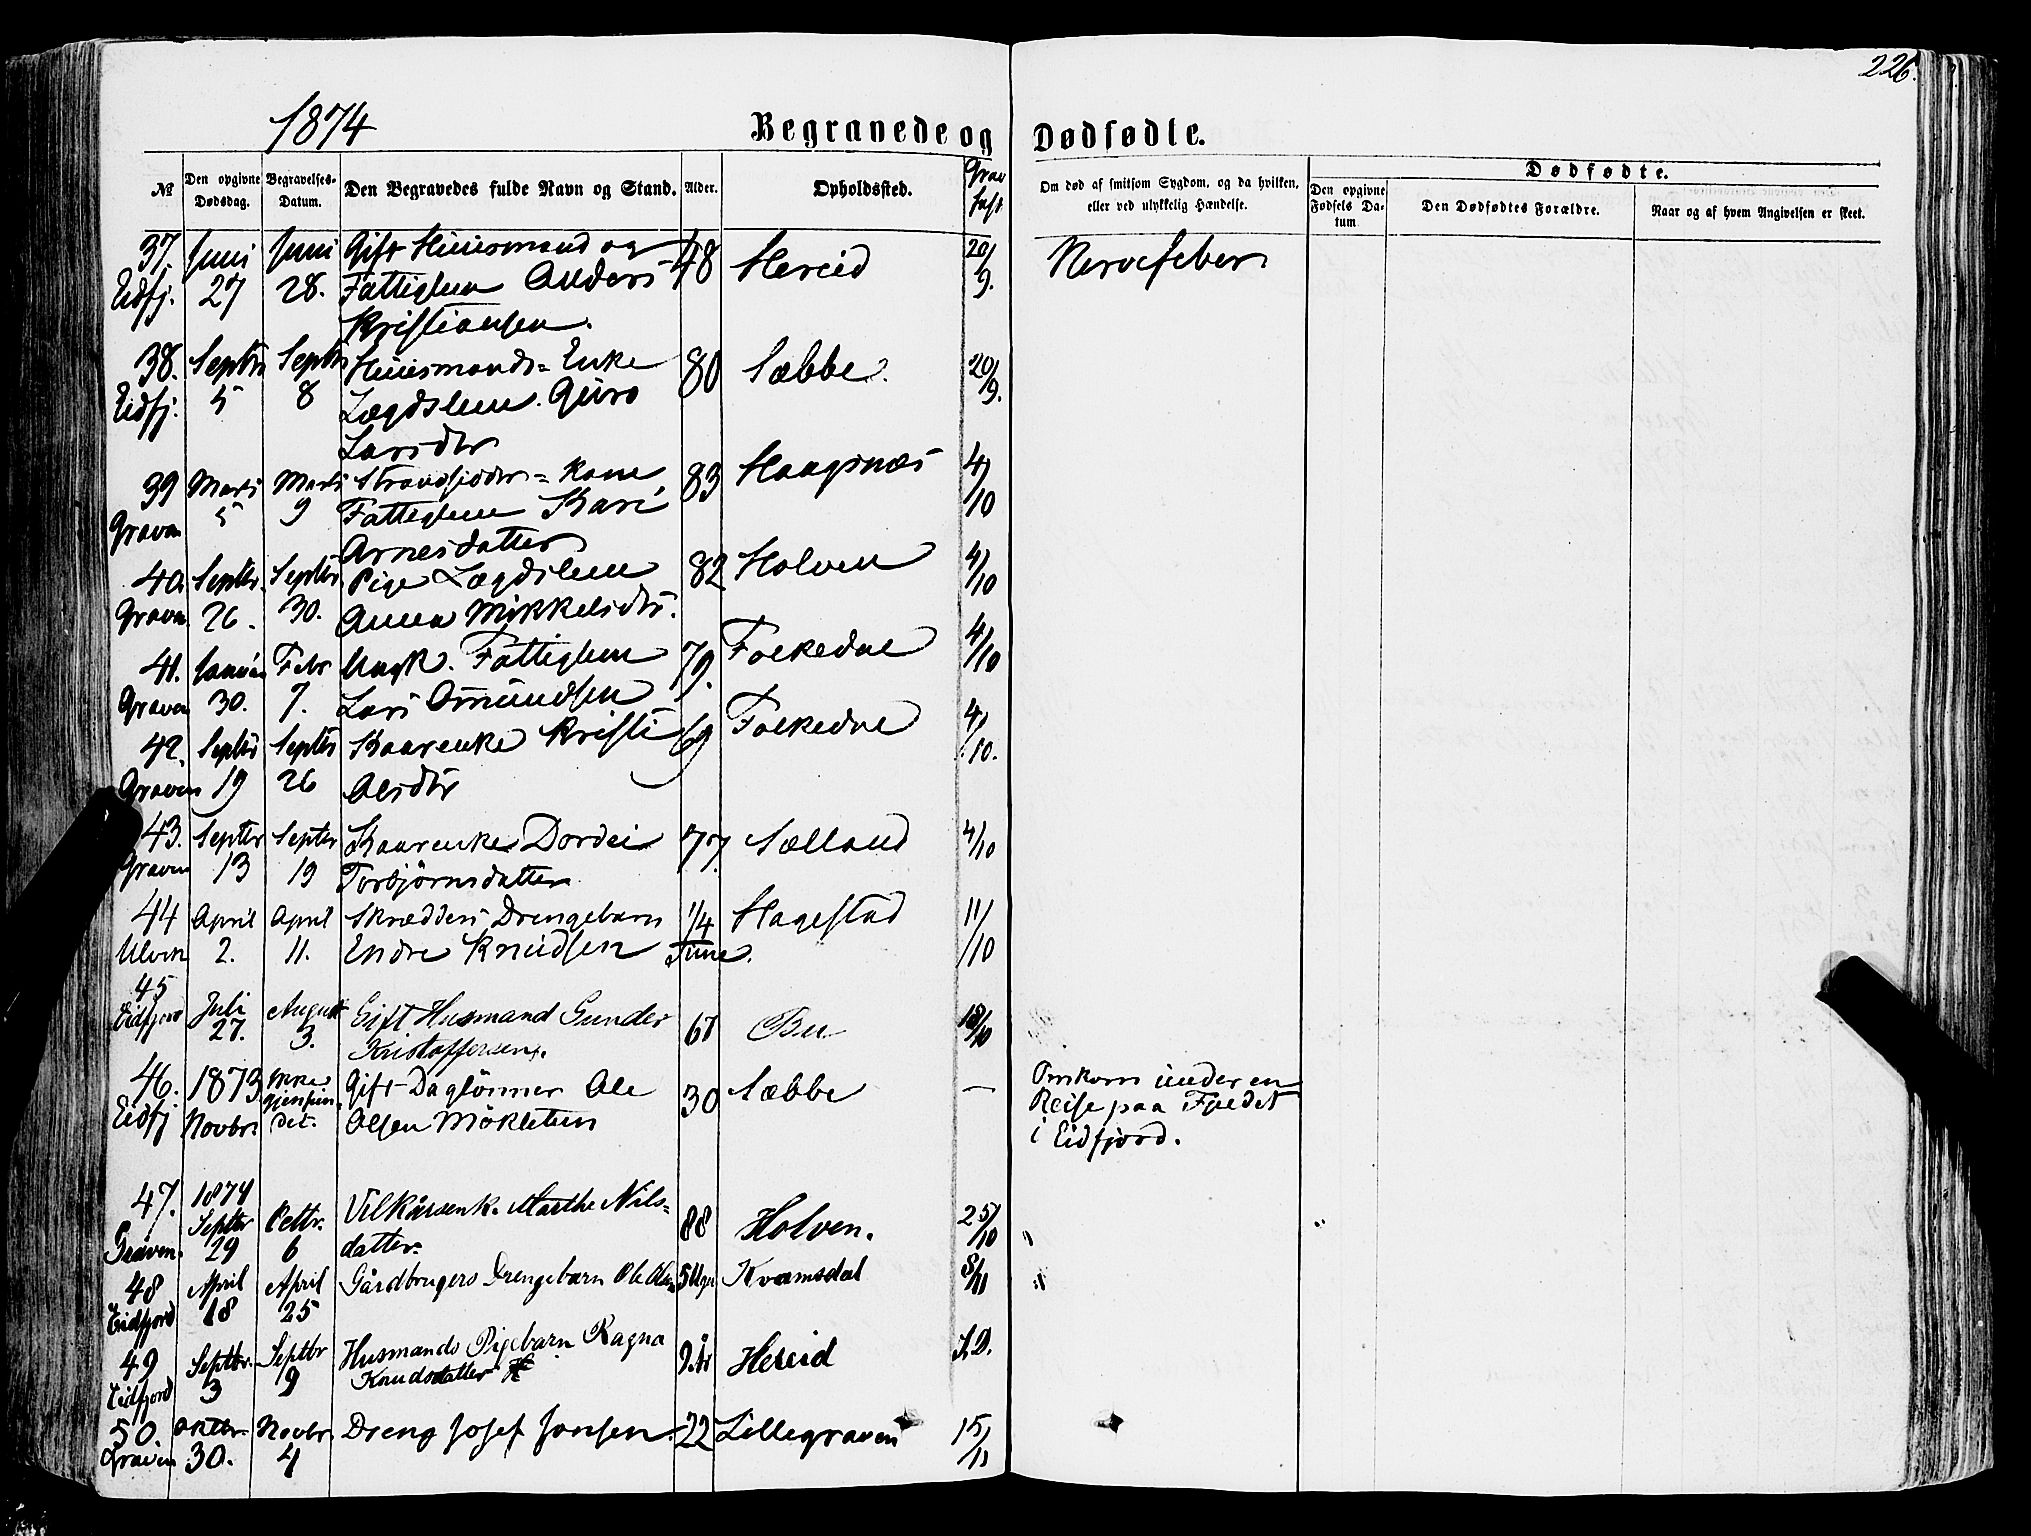 226.
1874
Begravede og Dødfødte.
№
Den opgivne Dødsdag.
Begravelses-Datum.
Den Begravedes fulde Navn og Stand.
Alder.
Opholdssted.
Grav fæst
Om død af smitsom Sygdom, og da hvilken, eller ved ulykkelig Hændelse.
Dødfødte.
Den opgivne Fødsels Datum
Den Dødfødtes Forældre.
Naar og af hvem Angivelsen er skeet.
37. Juni Juni Gift Huusmand og 48 Hereid 20/9. Nervefeber
Eidfj. 27 28. Fattiglem Anders
Kristiansen.
38. Septbr Septbr Huusmands= Enke 80 Sæbbe. 20/9.
Eidfj. 5 8 Lægdslem. Guro
Larsdtr
39 Marts Marts Strandsidder= Kone 83 Haagsnæs 4/10
Graven 5 9 Fattiglem Kari
Arnesdatter
40. Septbr. Septbr Pige Lægdslem 82 Holven 4/10
Graven 26. 30. Anna Mikkelsdtr.
41. Januar Febr Ungk. Fattiglem 79. Folkedal 4/10
Graven 30. 7. Lars Omundsen
42. Septbr Septbr Kaarenke Kristi 69 Folkedal 4/10.
Graven 19 26 Olsdtr
43. Septbr Septbr Kaarenke Dordei 77. Sælland 4/10
Graven 13 19 Torbjørnsdatter
44 April April Skrædders Drengebarn 1/4 Hagestad 11/10
Ulvik 2. 11. Endre Knudsen Time.
45
Eidfjord Juli August Gift Husmand Gunder 67 Bu 18/10
27. 3. Kristoffersen.
46. 1873 Ikke Gift Daglönner Ole 30 Sæbbe — Omkom under en
Eidfj Novbr gjenfundet. Olsen Mökletun Reise paa Fjeldet
i Eidfjord.
47. 1874
Septbr Octbr. Vilkårsenk. Marthe Nils= 88 Holven. 25/10 "
Graven. 29 6 datter.
48 April April Gårdbrugers Drengebarn Ole Olsen 5 Uger Kvamsdal 8/11 "
Eidfjord 18 25
49 Septbr. Septbr Husmands Pigebarn Ragna 9. År Hereid S.D.
Eidfjord 3 9 Knudsdatter
50. Oktbr. Novbr. Dreng Josef Jonsen. 22 Lillegraven 15/11
Graven 30. 4